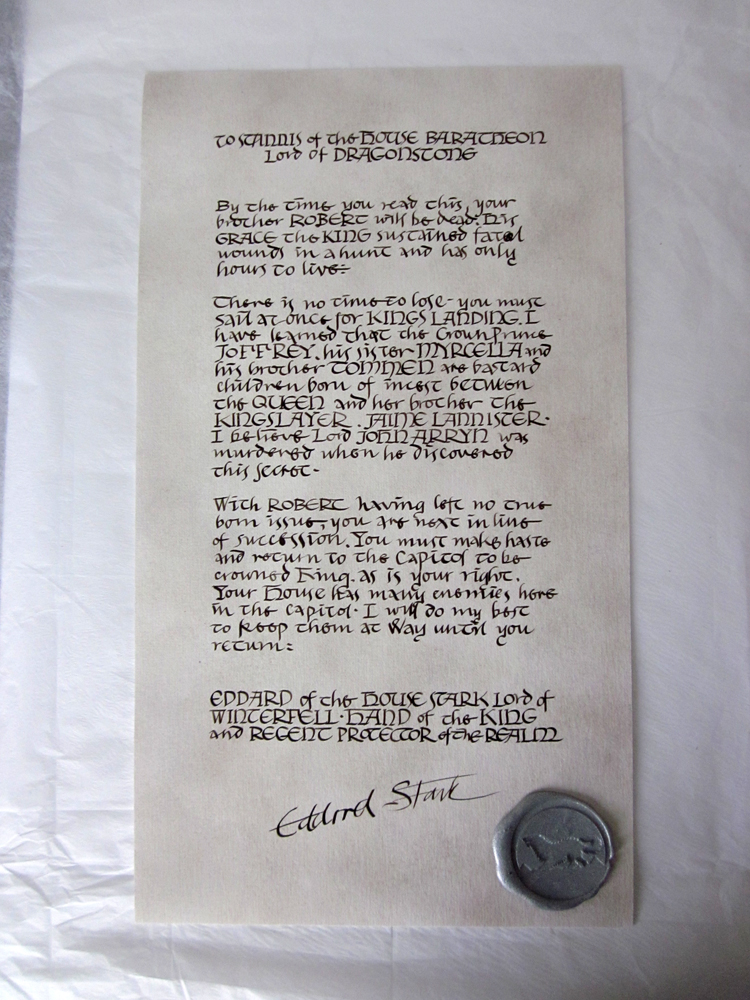 To STANNIS of the HOUSE BARATHEON
Lord of DRAGONSTONE
By the time you read this, your
brother ROBERT will be dead. His
GRACE the KING sustained fatal
wounds in a hunt and has only
hours to live:
There is no time to lose - you must
sail at once for KINGS LANDING. I
have learned that the Crown Prince
JOFFREY, his sister MYRCELLA and
his brother TOMMEN are bastard
children born of incest between
the QUEEN and her brother the
KINGSLAYER. JAIME LANNISTER.
I believe Lord JOHN ARRYN was
murdered when he discovered
this secret.
With ROBERT having left no true
born issue, you are next in line
of succession. You must make haste
and return to the Capitol to be
crowned King. as is your right.
Your House has many enemies here
in the Capitol. I will do my best
to keep them at Way until you
return:
EDDARD of the HOUSE STARK Lord of
WINTERFELL. HAND of the KING
and REGENT PROTECTOR of the REALM
Eddard Stark